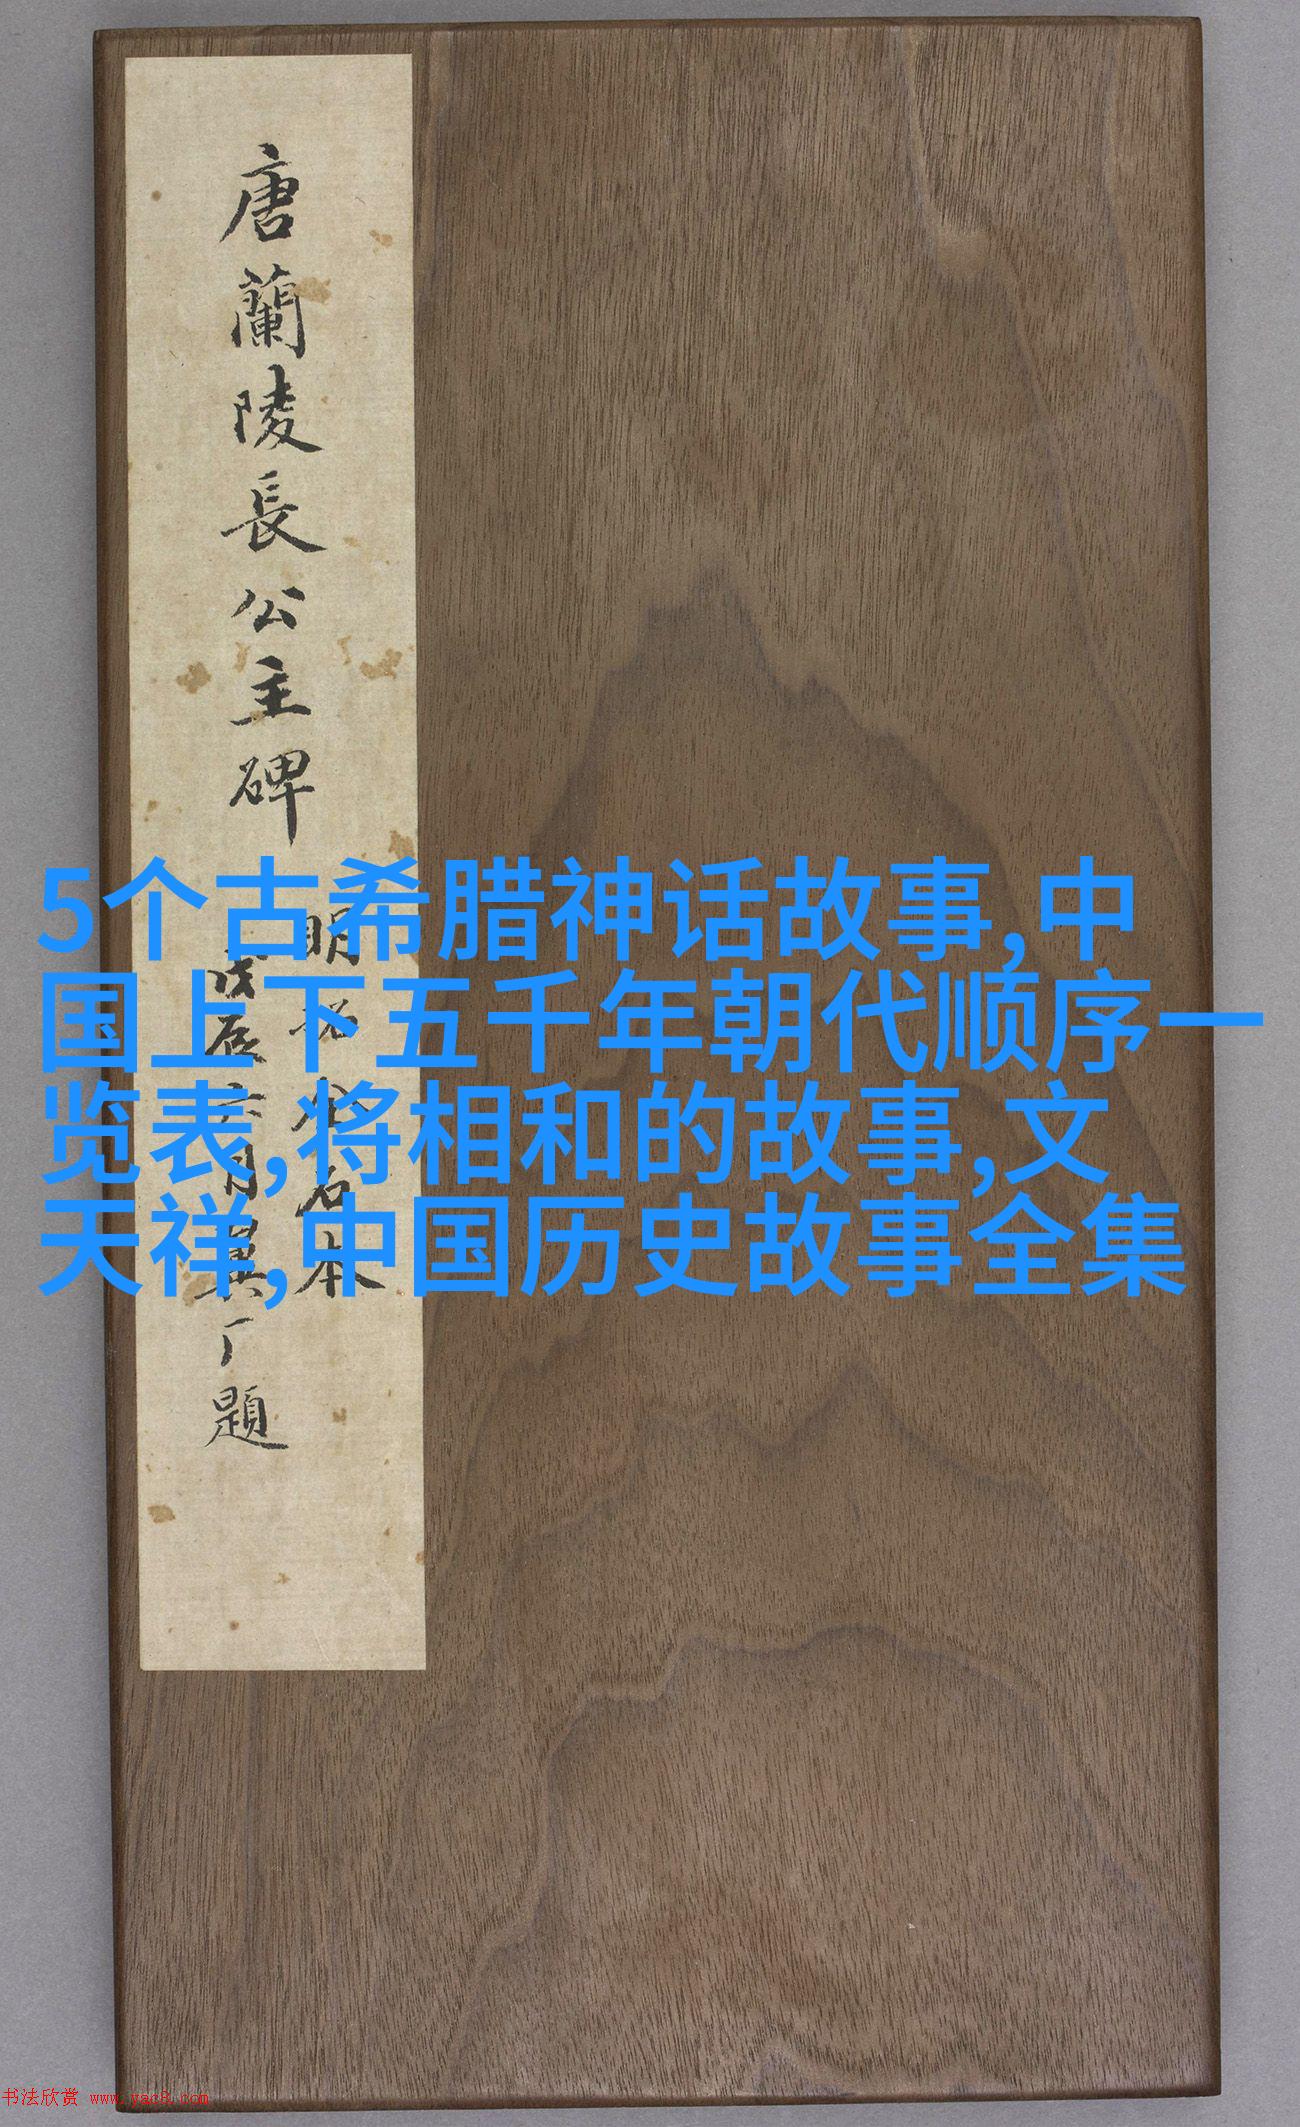 唐蘭陵長公主碑
明拓
石本
戊辰六月
題
5个古希腊神话故事,中
国上下五千年朝代顺序一
览表,将相和的故事,文
天祥,中国历史故事全集
书法欣赏 www.yac8.com